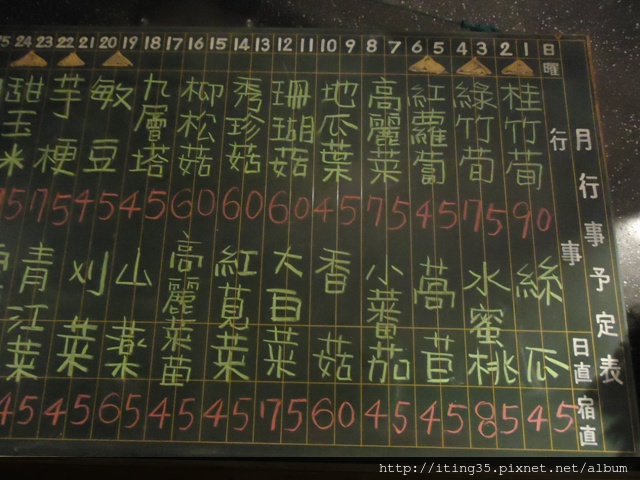 月行事予定表
日曜
行事
日直
宿直
25 24 23 22 21 20 19 18 17 16 15 14 13 12 11 10 9 8 7 6 5 4 3 2 1
桂竹荀
90
綠竹荀
75
紅蘿蔔
45
高麗菜
75
地瓜葉
45
珊瑚菇
60
秀珍菇
60
柳松菇
60
九層塔
45
敏豆
45
芋梗
75
甜玉米
5
絲瓜
45
水蜜桃
85
萵苣
45
小蕃茄
45
香菇
60
大白菜
75
紅莧菜
45
高麗菜苗
45
山藥
65
刈菜
45
青江菜
45
http://iting35.pixnet.net/album